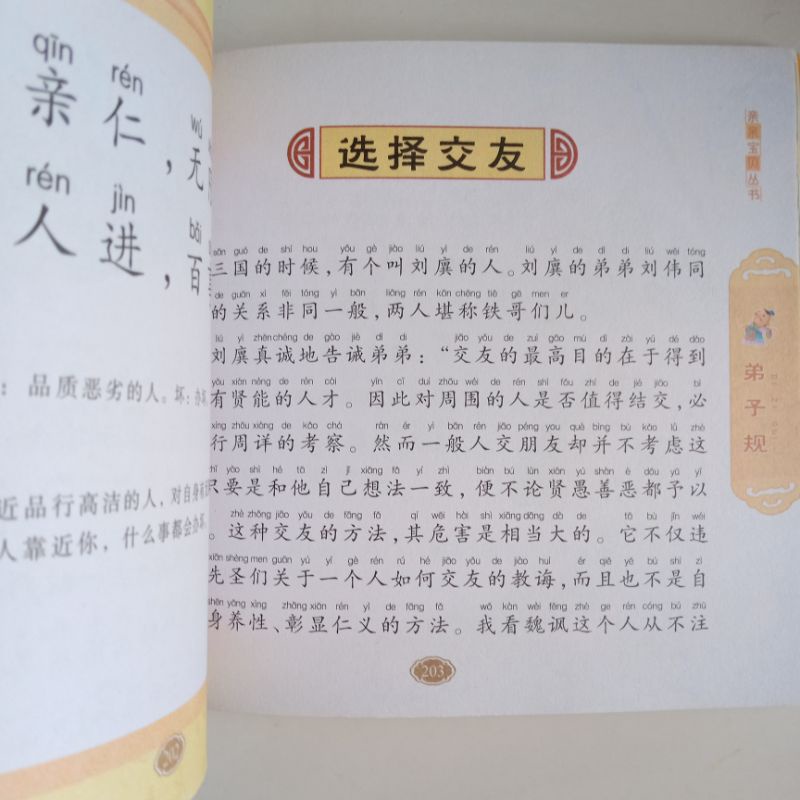 qīn rén wú
亲仁，无
rén jìn bǎi
人进，百
：品质恶劣的人。坏：办坏
近品行高洁的人，对自身有
人靠近你，什么事都会办坏
202
选择交友
sān guó de shí hou yǒu gè jiào liú yì de rén liú yì de dì di liú wěi tóng
三国的时候，有个叫刘廙的人。刘廙的弟弟刘伟同
de guān xì fēi tóng yì bān liǎng rén kān chēng tiě gē men er
的关系非同一般，两人堪称铁哥们儿。
liú yì zhēn chéng de gào jiè dì di jiāo yǒu de zuì gāo mù dì zài yú dé dào
刘廙真诚地告诫弟弟：“交友的最高目的在于得到
yǒu xián néng de rén cái yīn cǐ duì zhōu wéi de rén shì fǒu zhí de jié jiāo bì
有贤能的人才。因此对周围的人是否值得结交，必
xíng zhōu xiáng de kǎo chá rán ér yì bān rén jiāo péng you què bìng bù kǎo lǜ zhè
行周详的考察。然而一般人交朋友却并不考虑这
zhǐ yào shì hé tā zì jǐ xiǎng fǎ yí zhì biàn bú lùn xián yú shàn è dōu yǔ yǐ
只要是和他自己想法一致，便不论贤愚善恶都予以
zhè zhǒng jiāo yǒu de fāng fǎ qí wēi hài shì xiāng dāng dà de tā bù jǐn wéi
。这种交友的方法，其危害是相当大的。它不仅违
xiān shèng men guān yú yí gè rén rú hé jiāo yǒu de jiào huì ér qiě yě bú shì zì
先圣们关于一个人如何交友的教诲，而且也不是自
shēn yǎng xìng zhāng xiǎn rén yì de fāng fǎ wǒ kàn wèi fěng zhè ge rén cóng bú zhù
身养性、彰显仁义的方法。我看魏讽这个人从不注
203
亲亲宝贝丛书
弟子规